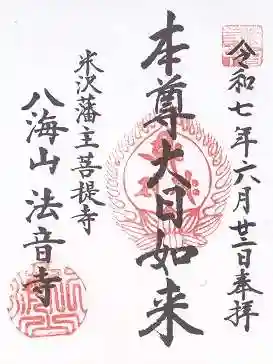 令和七年六月廿二日奉拝
本尊大日如来
米沢藩主菩提寺
八海山法音寺